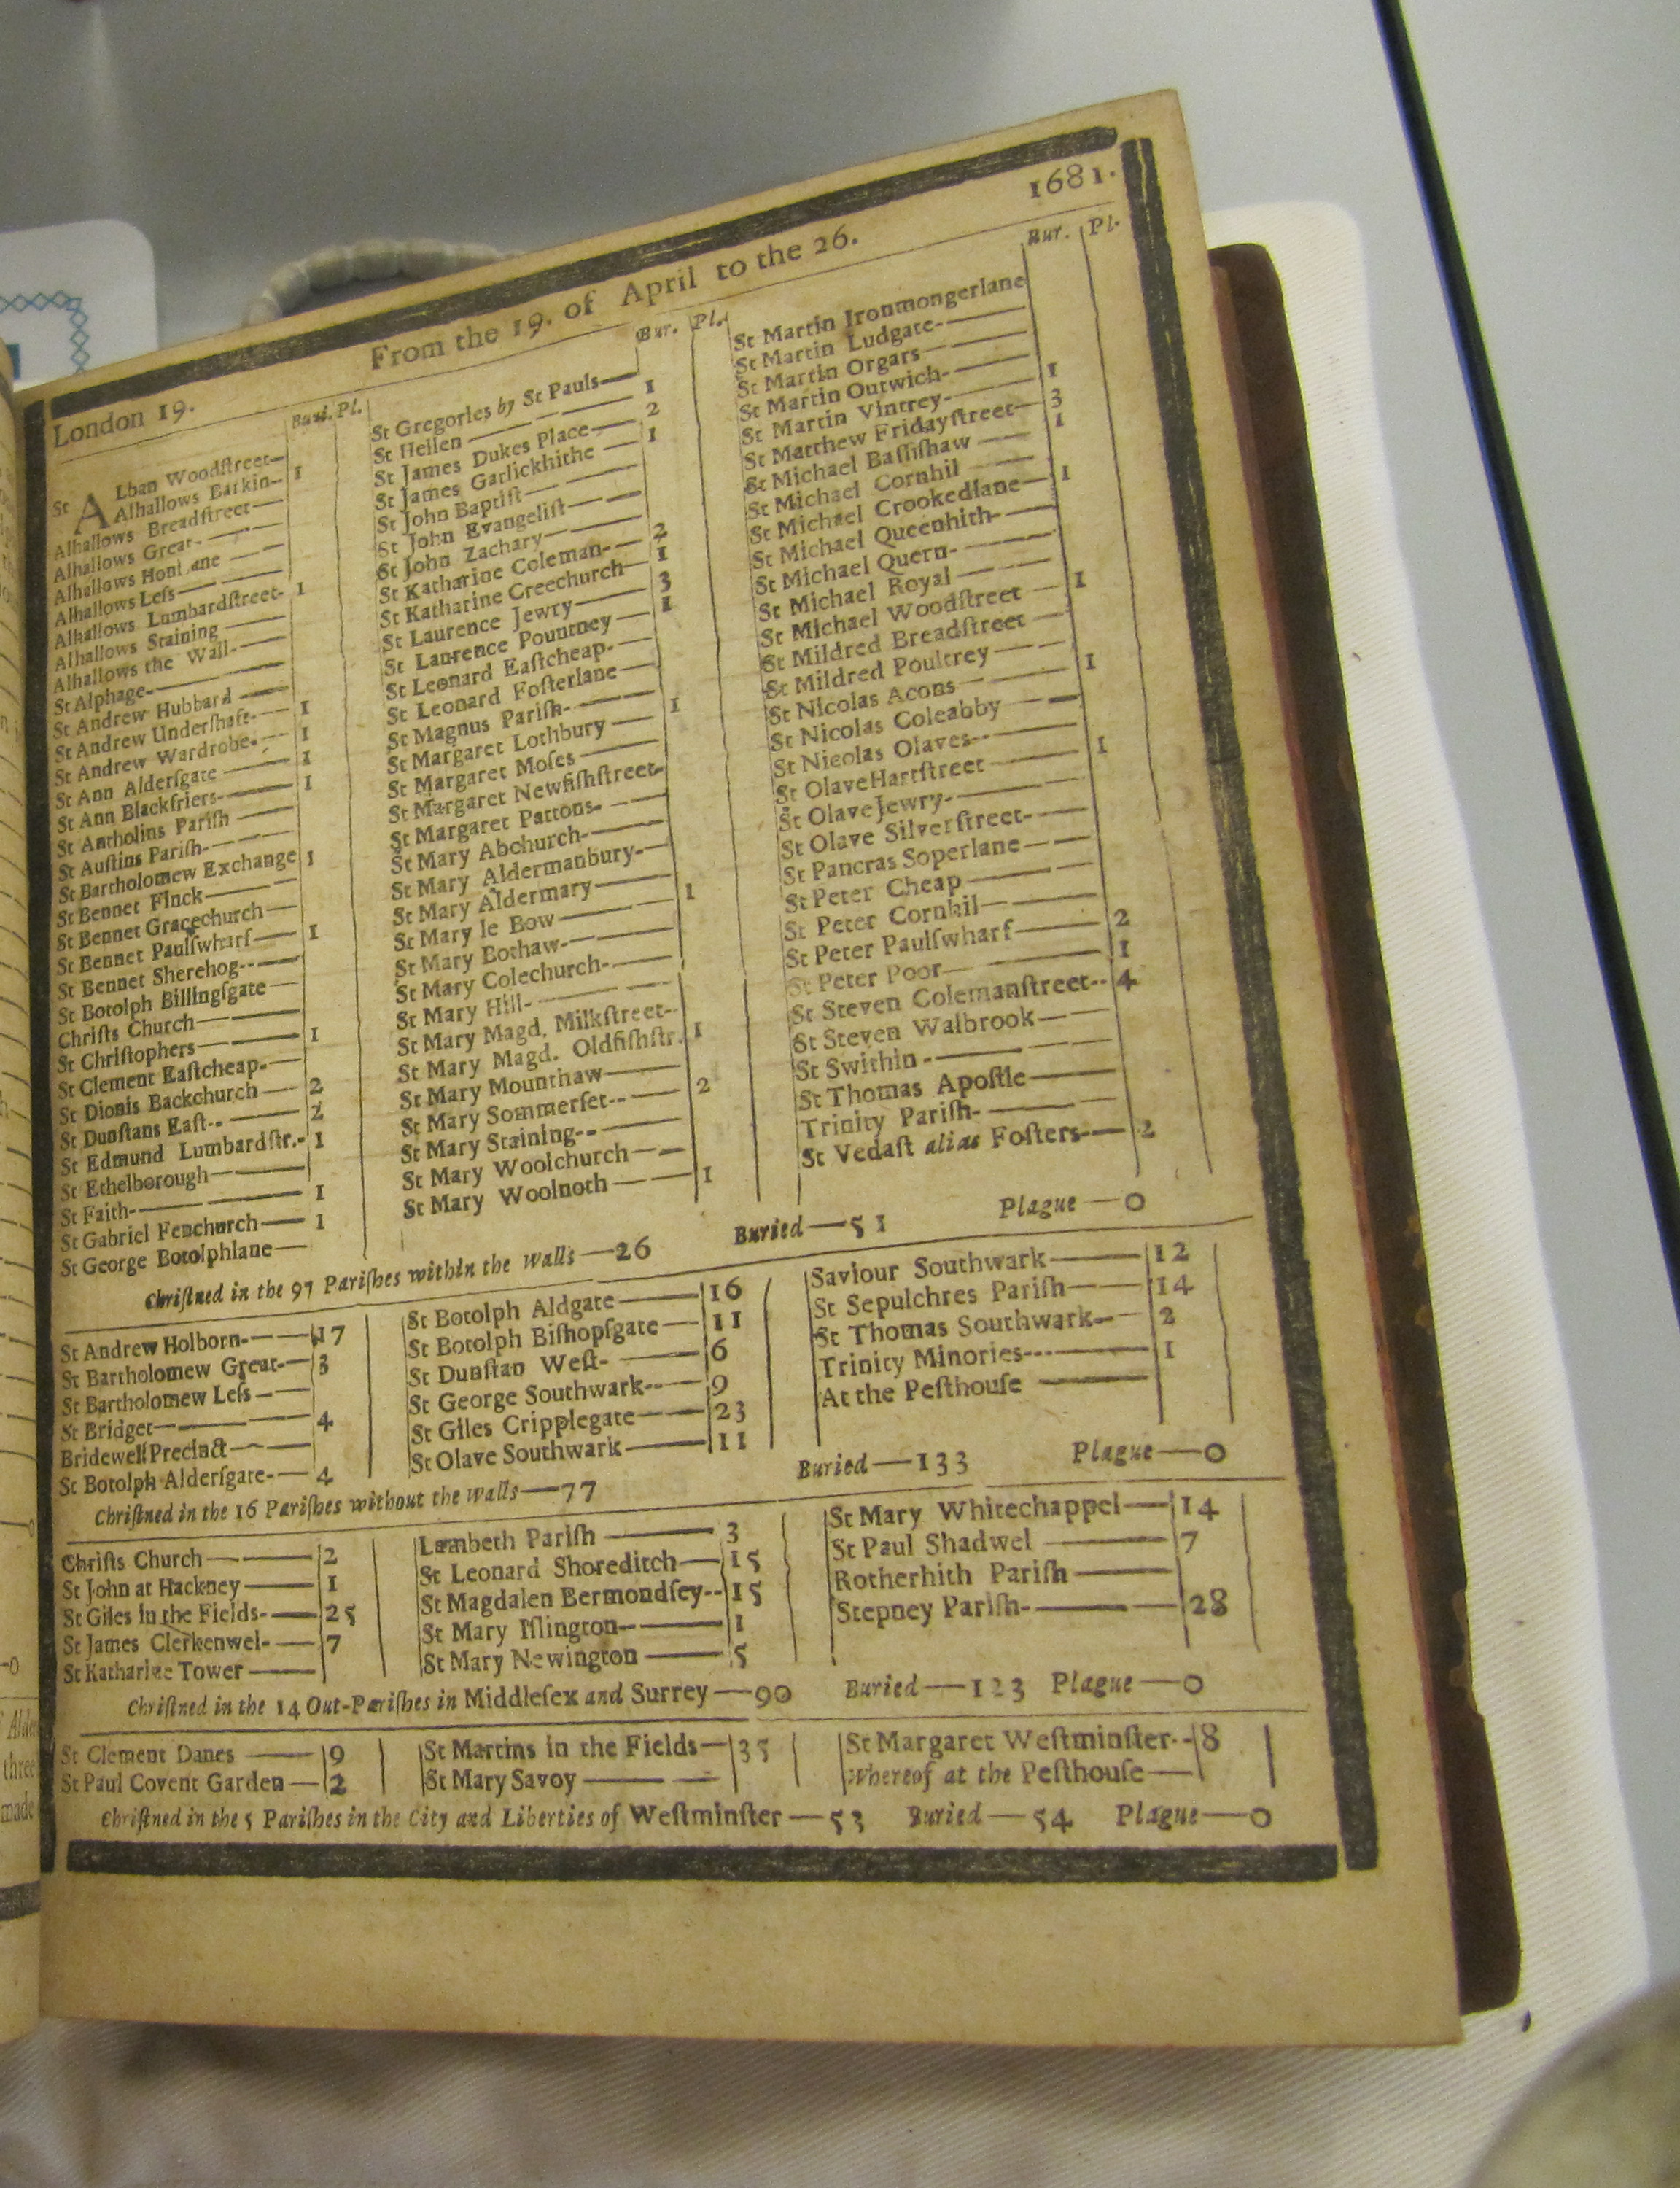 London 19. From the 19. of April to the 26. 1681.
Buri. Pl.
St ALban Woodſtreet—
Alhallows Barkin— 1
Alhallows Breadſtreet—
Alhallows Great-
Alhallows Honl ane
Alhallows Leſs
Alhallows Lumbardſtreet- 1
Alhallows Staining
Alhallows the Wall-
St Alphage-
St Andrew Hubbard
St Andrew Underſhaft- 1
St Andrew Wardrobe- 1
St Ann Alderſgate 1
St Ann Blackfriers- 1
St Antholins Pariſh
St Auſtins Pariſh-
St Bartholomew Exchange 1
St Bennet Finck
St Bennet Gracechurch
St Bennet Paulſwharf— 1
St Bennet Sherehog--
St Botolph Billingſgate
Chriſts Church
St Chriſtophers 1
St Clement Eaſtcheap-
St Dionis Backchurch 2
St Dunſtans Eaſt-- 2
St Edmund Lumbardſtr.- 1
St Ethelborough
St Faith- 1
St Gabriel Fenchurch— 1
St George Botolphlane
Bur. Pl.
St Gregories by St Pauls—
St Hellen 1
St James Dukes Place— 2
St James Garlickhithe 1
St John Baptiſt
St John Evangeliſt
St John Zachary
St Katharine Coleman- 2
St Katharine Creechurch— 1
St Laurence Jewry 3
St Laurence Pountney 1
St Leonard Eaſtcheap-
St Leonard Foſterlane
St Magnus Pariſh-
St Margaret Lothbury 1
St Margaret Moſes
St Margaret Newfiſhſtreet-
St Margaret Pattons-
St Mary Abchurch-
St Mary Aldermanbury-
St Mary Aldermary
St Mary le Bow 1
St Mary Bothaw-
St Mary Colechurch-
St Mary Hill-
St Mary Magd. Milkſtreet-
St Mary Magd. Oldfiſhſtr. 1
St Mary Mounthaw
St Mary Sommerſet-- 2
St Mary Staining--
St Mary Woolchurch
St Mary Woolnoth 1
Bur. Pl.
St Martin Ironmongerlane
St Martin Ludgate-
St Martin Orgars
St Martin Outwich-
St Martin Vintrey- 1
St Matthew Fridayſtreet— 3
St Michael Baſſiſhaw 1
St Michael Cornhil
St Michael Crookedlane— 1
St Michael Queenhith-
St Michael Quern-
St Michael Royal
St Michael Woodſtreet 1
St Mildred Breadſtreet
St Mildred Poultrey
St Nicolas Acons 1
St Nicolas Coleabby
St Nicolas Olaves--
St Olave Hartſtreet 1
St Olave Jewry-
St Olave Silverſtreet-
St Pancras Soperlane
St Peter Cheap
St Peter Cornhil
St Peter Paulſwharf 2
St Peter Poor 1
St Steven Colemanſtreet-- 4
St Steven Walbrook
St Swithin -
St Thomas Apoſtle
Trinity Pariſh-
St Vedaſt alias Foſters-— 2
Chriſtned in the 97 Pariſhes within the Walls —26 Buried—51 Plague—0
St Andrew Holborn- 17
St Bartholomew Great- 3
St Bartholomew Leſs
St Bridget 4
Bridewell Precinct
St Botolph Alderſgate- 4
St Botolph Aldgate 16
St Botolph Biſhopſgate 11
St Dunſtan Weſt- 6
St George Southwark-- 9
St Giles Cripplegate 23
St Olave Southwark 11
Saviour Southwark 12
St Sepulchres Pariſh 14
St Thomas Southwark- 2
Trinity Minories--- 1
At the Peſthouſe
Chriſtned in the 16 Pariſhes without the walls—77 Buried—133 Plague—0
Chriſts Church 2
St John at Hackney 1
St Giles in the Fields- 25
St James Clerkenwel- 7
St Katharine Tower
Lambeth Pariſh 3
St Leonard Shoreditch 15
St Magdalen Bermondſey-- 15
St Mary Iſlington-- 1
St Mary Newington 5
St Mary Whitechappel 14
St Paul Shadwel 7
Rotherhith Pariſh
Stepney Pariſh- 28
Chriſtned in the 14 Out-Pariſhes in Middleſex and Surrey—90 Buried—123 Plague—0
St Clement Danes 9
St Paul Covent Garden 2
St Martins in the Fields 35
St Mary Savoy
St Margaret Weſtminſter-- 8
Whereof at the Peſthouſe
Chriſtned in the 5 Pariſhes in the City and Liberties of Weſtminſter—53 Buried—54 Plague—0
three
made